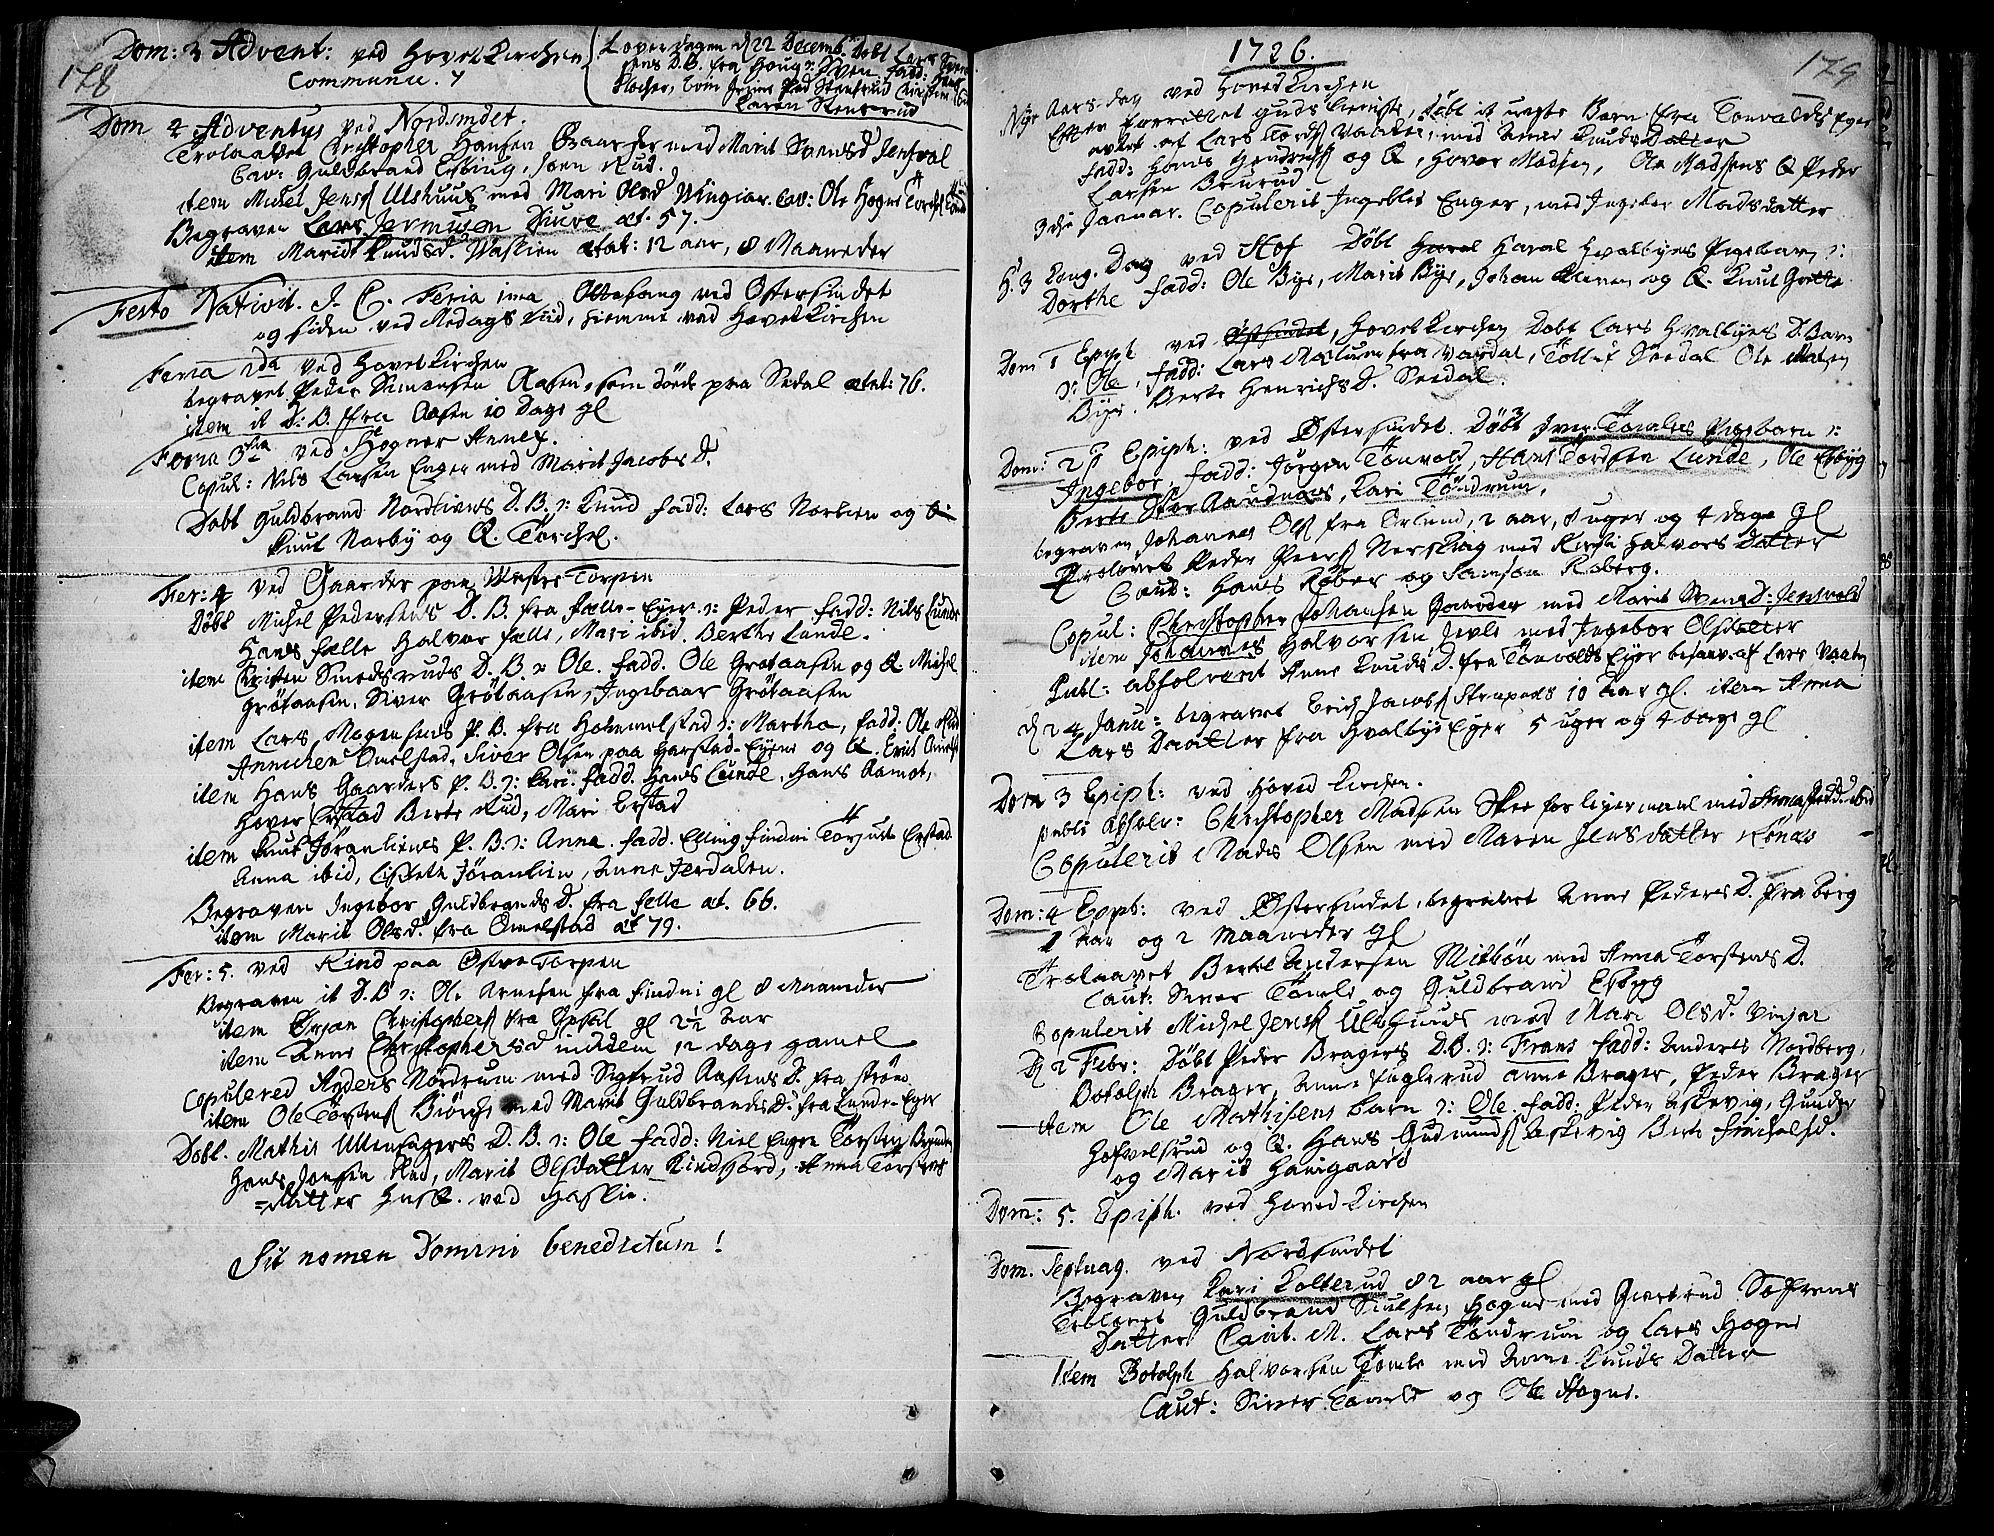 178
Dom: 3 Advent: ved Hovet Kirchen
Communic. 7
Loverdagen d 22 Decemb. Døbt Lars
D. B. fra Houg : Sven, fadd:
Klocher,
Karen Stensrud
Dom 4 Adventus ved Nordsindet.
Trolaavet Christopher Hansen Gaarder med Marit Svensd Jensvol
Cav: Guldbrand Essbiug, Joen Rud.
item Michel Jens Ulshuus med Mari Olsd Wingiar. Cav: Ole Hogne
Begraven Lars Jermusen Diuve æt. 57.
item Marit Knudsd. Waskien ætat: 12 aar, 8 Maaneder
Festo Nativit. J. C. Feria 1ma Ottesang ved Østersindet
og siden ved Medags tiid, hiemme ved Hovet Kirchen
Feria 2da ved Hovet Kirchen
begravet Peder Simensen Aasen, som døde paa Sedal ætat: 76.
item it D: B. fra Aasen 10 Dage gl
Feria 3tia ved Hognes Annex.
Copul: Nils Larsen Enger med Marit Jacobs D.
Døbt Guldbrand Nordliens D. B. : Knud fadd: Lars Norlien og
Knut Norby og Q. Torchel.
Fer: 4 ved Gaarder paa Westre Torpen
Døbt Michel Pedersens D. B fra Fælle-Eyer : Peder fadd: Nils Lunde
Hans Fælle Halvor Fælle, Mari ibid. Berthe Lunde.
item Christen Smedsruds D. B : Ole. fadd. Ole Grøtaasen og Q Michel
Grøtaasen, Siver Grøtaasen, Ingebaar Grøtaasen
item Lars Mogensens P. B. fra Hommelstad : Martha, fadd: Ole Rud
Annichen Omelstad, Siver Olsen paa Harstad-Eyene og Q. Erich
item Hans Gaarders P. B. : Kari. fadd. Hans Lunde, Hans Aamot,
Hover Erstad Berte Rud, Mari Erstad
item Knut Jøranliens P. B. : Anna. fadd. Elling Findni Torjust Erstad
Anna ibid, Lisbeth Jøranlien, Anne Jerdalen.
Begraven Ingebor Guldbrands D. fra Felle æt. 66.
item Marit Olsd. fra Omelstad æt 79.
Fer: 5. ved Kind paa Østre Torpen
Begraven it D. B : Ole Arnesen fra Findni gl 8 Maaneder
item Ørjan Christophers fra gl 2½ Aar
item Anne Christophersd ibidem 12 dage gamel
Copulered Anders Nordrum med Sigfrud Aastens D. fra Strøm
item Ole Torstens Biørche med Marit Guldbrands D. fra Lunde-Eyer
Døbt. Mathis Ullensagers D. B. : Ole fadd: Niel Engen Torsten
Hans Jensen Rud, Marit Olsdatter Kindsjord, Anna Torstens
=Datter Husb. ved Haslie.
Sit nomen Domini benedictum!
1736.
179
Nye Aars-dag ved Hoved Kirchen
Efter forrettet Guds tieniste, døbt it uægte Barn fra Tonvaldts Eyer
avlet af Lars Tords Vaaten, med Anne Knuds Datter
fadd: Hans Hendrichs og Q, Hover Madsen, Ole Madsens Q Peder
Larsen Brurud
3die Januar. Copulerit Ingeblet Enger, med Ingebor Madsdatter
H. 3 Kong. Dag ved Hof Døbt Haral Haral Hvalbyes Pigebarn :
Dorthe fadd: Ole Bye, Marit Bye, Johan Kleven og Q. Knut Grette
Dom 1 Epiph ved Østsindet, Hovet Kirchen Døbt Lars Hvalbyes D. Barn
: Ole, fadd: Lars Maslum fra Vardal, Tollef Seedal Ole Madsen
Bye. Berte Henrichs D. Seedal.
Dom: 2 p Epiph: ved Østersindet. Døbt Iver Tomles Pigebarn :
Ingebor, fadd: Jørgen Tonvold, Hans Tordsen Lunde, Ole Esbyg
Berte Stor Raudnæs, Kari Tøndrum.
begraven Johannes Ols fra Ørlund, 2 aar, 8 uger og 4 dage gl
Trolovet Peder Peers Nerskag med Kirsti Halvors Datter
Caut: Hans Røber og Samson Koberg.
Copul: Christopher Johansen Gaarder med Marit Svens D: Jensvold
item Johannes Halvorsen Jevle med Ingebor Olsdatter
Publ: absolverit Anne Knuds D. fra Tonvolds Eyer besauv. af Lars Vaaten
d 24 Janu: begravet Erich Jacobs Strupeds 10 Aar gl. item Anna
Lars Daatter fra Hvalbye Eyer 5 uger og 4 dage gl
Dom 3 Epiph: ved Hoved Kirchen.
publ Absolv: Christopher Madsen Skee for legermaal med Anna Ped. d. ibid
Copulerit Mads Olsen med Maren Jens datter Rønæs
Dom: 4 Epiph: ved Østersindet, begravet Anne Peders D. fra Berg
1 Aar og 2 Maaneder gl
Trolaavet Bertel Andersen Mitbøn med Anna Torstens D.
Caut: Siver Tomle og Guldbrand Esbyg
Copulerit Michel Jens Ulshuus med Mari Olsd. Vinjar
D 2 Febr: Døbt Peder Bragers D. B. : Frans fadd: Anders Nordberg,
Botolph Brager, Anne Fuglerud Anne Brager, Peder Brager
item Ole Mathisens barn : Ole fadd: Peder Askevig, Gunder
Hofvelsrud og Q. Hans Gudmunds Askevig Berte
og Marit Haugaard
Dom: 5. Epiph. ved Hoved Kirchen
Dom. Septuag. ved Nordsindet
Begraven Kari Kolterud 82 aar gl
Trolovet Guldbrand Siulsen Hogne med Giertrud Søfrens
Datter Caut. M. Lars Tøndrum og Lars Hogne
Item Botolph Halvorsen Tomle med Anne Knuds Datter
Caut: Siver Tomle og Ole Hogne.